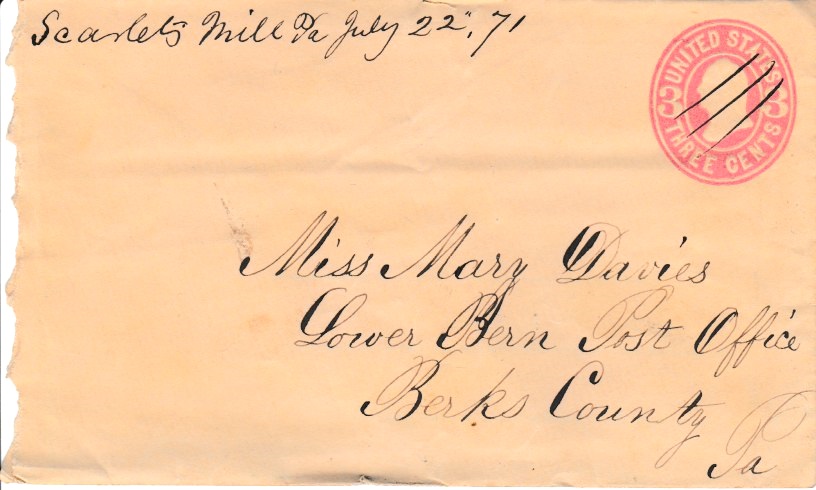 Scarlets Mill Pa July 22", 71
UNITED STATES
3 3
THREE CENTS
Miss Mary Davies
Lower Bern Post Office
Berks County
Pa